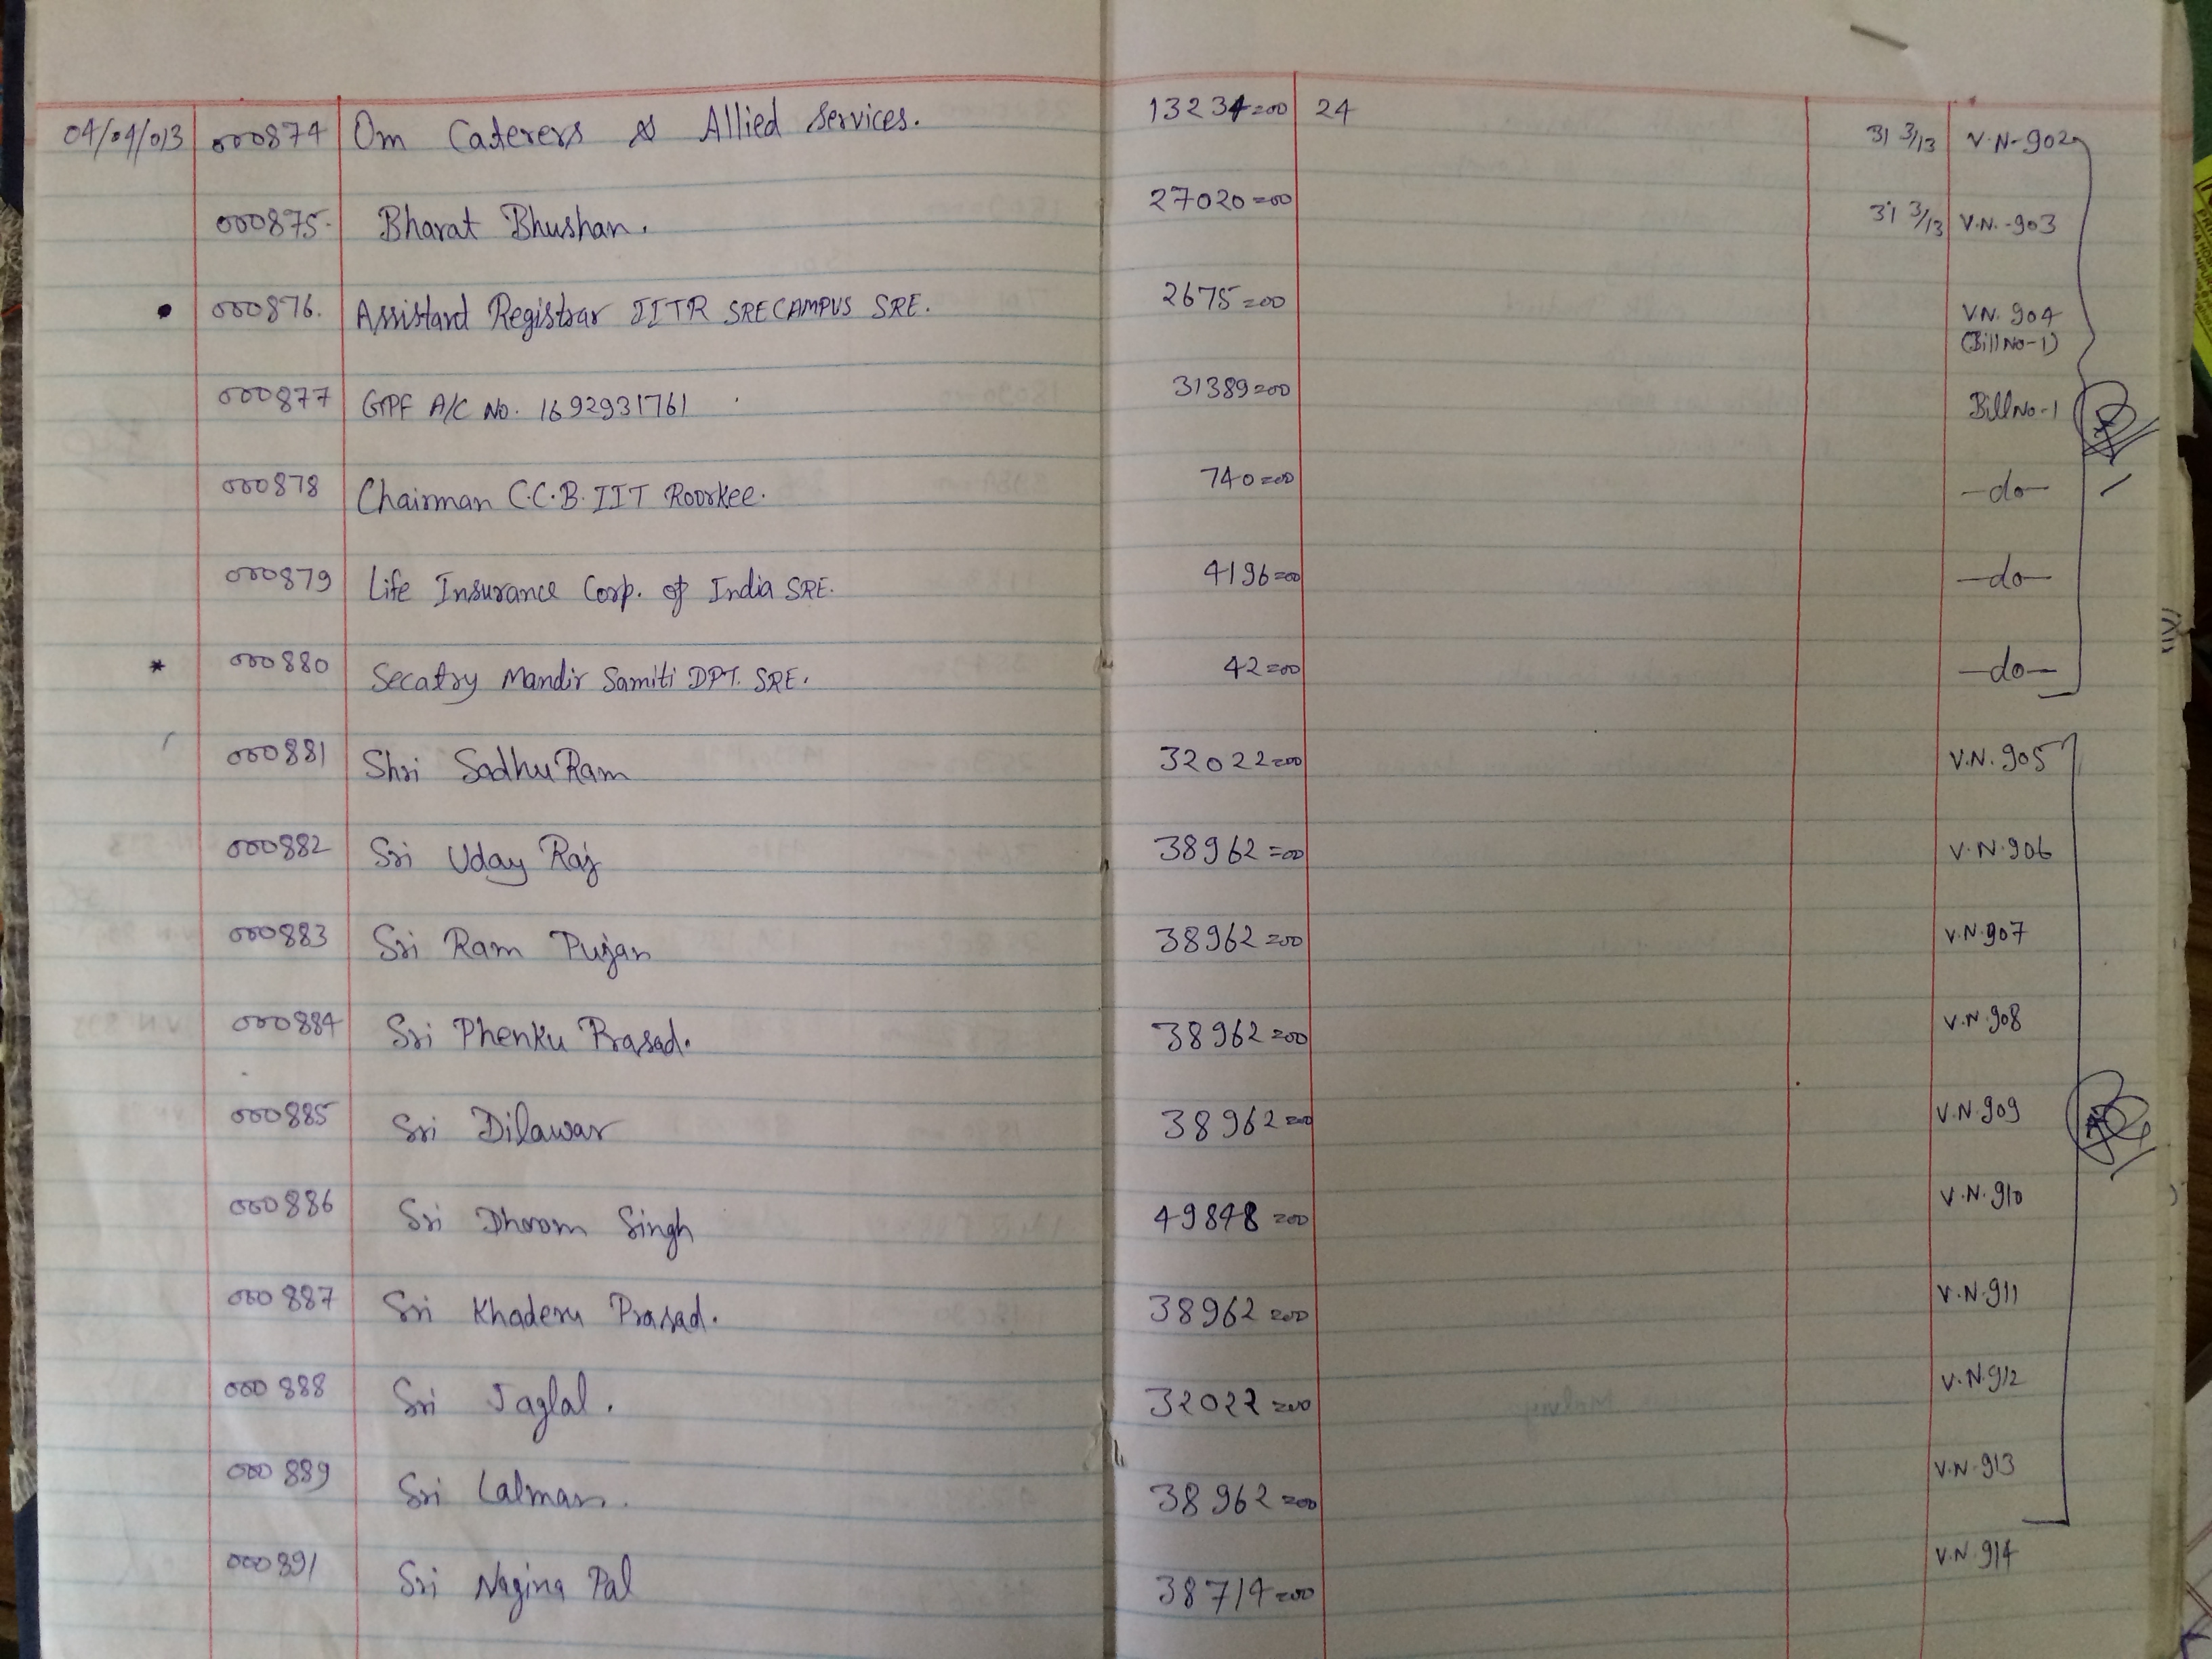 04/04/013 000874 Om Caterers & Allied Services. 13234=00 24 31 3/13 V.N-902
000875. Bharat Bhushan. 27020=00 31 3/13 V.N.-903
000876. Assistard Registrar IITR SRE CAMPUS SRE. 2675=00 V.N. 904 (Bill No-1)
000877 GPF A/C No. 1692931761 31389=00 Bill No-1
000878 Chairman C.C.B. IIT Roorkee. 740=00 -do-
000879 Life Insurance Corp. of India SRE. 4196=00 -do-
* 000880 Secatry Mandir Samiti DPT. SRE. 42=00 -do-
000881 Shri Sadhu Ram 32022=00 V.N. 905
000882 Sri Uday Raj 38962=00 V.N. 906
000883 Sri Ram Pujan 38962=00 V.N. 907
000884 Sri Phenku Prasad. 38962=00 V.N. 908
000885 Sri Dilawar 38962=00 V.N. 909
000886 Sri Dharam Singh 49848=00 V.N. 910
000887 Sri Khaderu Prasad. 38962=00 V.N. 911
000888 Sri Jaglal. 32022=00 V.N. 912
000889 Sri Lalman. 38962=00 V.N. 913
000891 Sri Nagina Pal 38714=00 V.N. 914